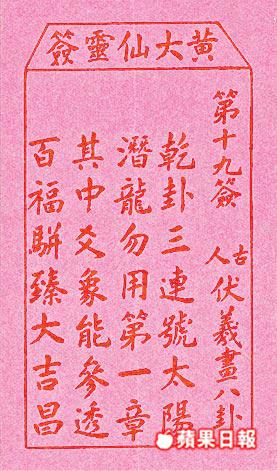 黃大仙靈簽
第十九簽
古人 伏羲畫八卦
乾卦三連號太陽
潛龍勿用第一章
其中爻象能參透
百福駢臻大吉昌
蘋果日報